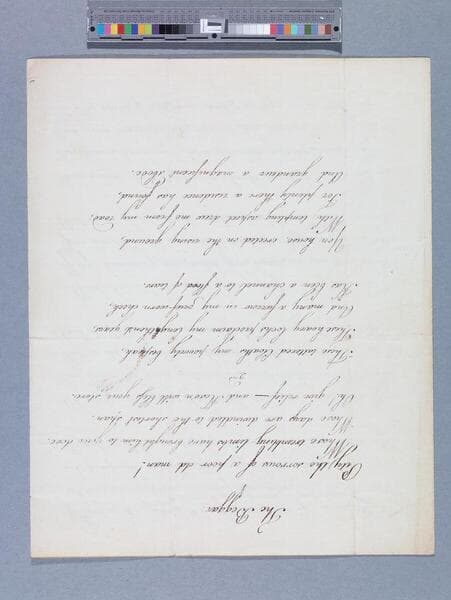 The Beggar
Pity, the sorrows of a poor old man!
Whose trembling limbs have brought him to your door.
Whose days are dwindled to the shortest span.
Oh give relief — and Heaven will bless your store.
2nd
These tattered Cloaths my poverty bespeak,
These hoary locks proclaim my lengthened years,
And many a furrow in my grief-worn cheek,
Has been a channel to a flood of tears.
Yon house, erected on the rising ground,
With tempting aspect drew me from my road,
For plenty there a residence has found,
And grandeur a magnificent abode.